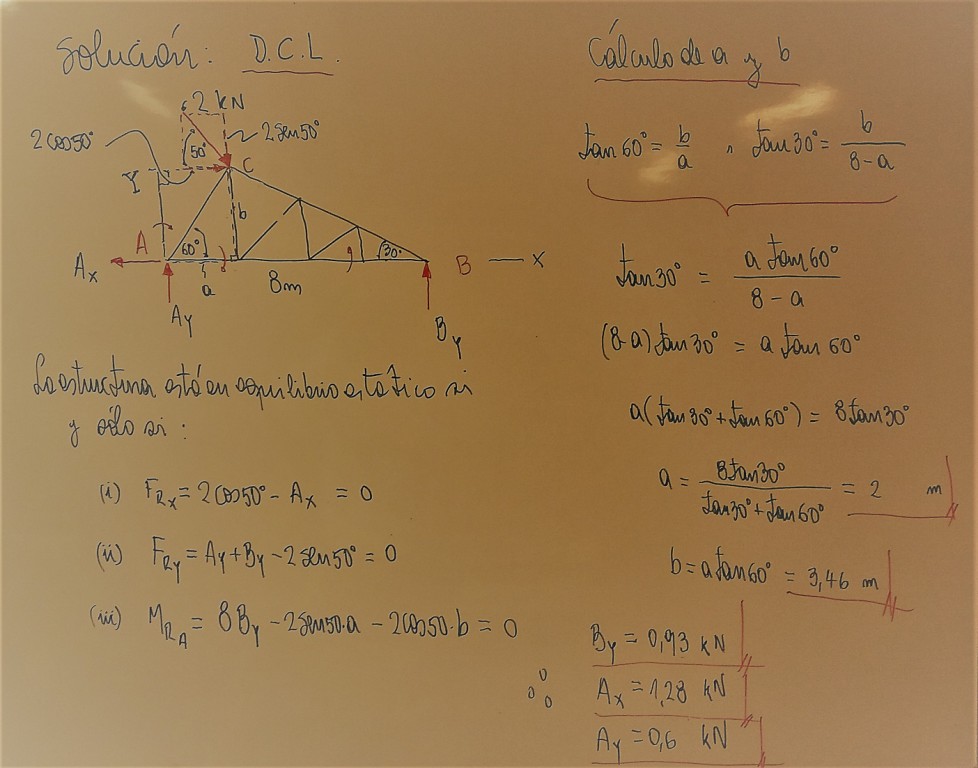 Solución: D.C.L.
2 kN
2cos50°
2sen50°
50°
Y
C
b
A
60°
30°
Ax
a
8m
B
x
Ay
By
La estructura está en equilibrio estático si
y sólo si:
(i) FRx = 2cos50° - Ax = 0
(ii) FRy = Ay + By - 2sen50° = 0
(iii) MRA = 8By - 2sen50·a - 2cos50·b = 0
Cálculo de a y b
tan60° = b/a , tan30° = b/(8-a)
tan30° = a tan60°/(8-a)
(8-a)tan30° = a tan60°
a(tan30° + tan60°) = 8tan30°
a = 8tan30°/(tan30° + tan60°) = 2 m
b = a tan60° = 3,46 m
By = 0,93 kN
∴ Ax = 1,28 kN
Ay = 0,6 kN